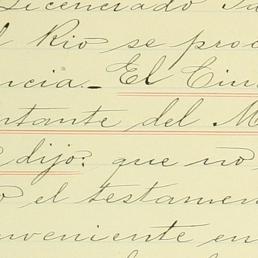 Licenciado Ja
l Rio se proc
ncia._ El Ciu
ntante del M
dijo: que no
o el testamen
nveniente en